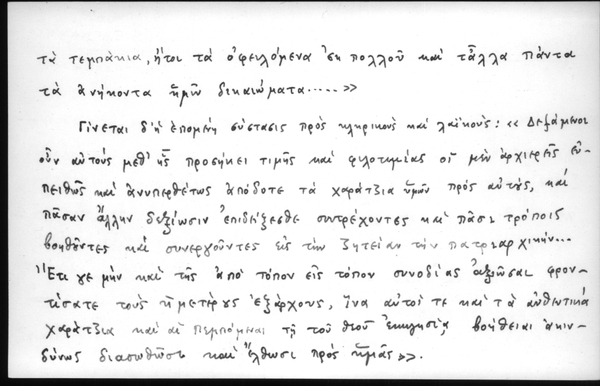 τὰ τεμπάκια, ἤτοι τά ὀφειλόμενα ἐκ πολλοῦ καί τἄλλα πάντα
τὰ ἀνήκοντα ἡμῶν δικαιώματα.....»
Γίνεται δ' ἡ ἑπομένη σύστασις πρός κληρικούς καί λαϊκούς: «Δεξάμενοι
οὖν αὐτούς μεθ' ἧς προσήκει τιμῆς καί φιλοτιμίας οἱ μὲν ἀρχιερεῖς εὐ-
πειθῶς καί ἀνυπερθέτως ἀπόδοτε τά χαράτζια ὑμῶν πρός αὐτούς, καί
πᾶσαν ἄλλην δεξίωσιν ἐπιδείξεσθε συντρέχοντες καί πᾶσι τρόποις
βοηθοῦντες καί συνεργοῦντες εἰς τήν ζητείαν τήν πατριαρχικήν...
Ἔτι γε μήν καί τῆς ἀπό τόπον εἰς τόπον συνοδίας ἀξιῶσαι φρον-
τίσατε τούς ἡμετέρους ἐξάρχους, ἵνα αὐτοί τε καί τά αὐθεντικά
χαράτζια καί αἱ πεμπόμεναι τῇ τοῦ Θεοῦ ἐκκλησίᾳ βοήθειαι ἀκιν-
δύνως διασωθῶσι καί ἔλθωσι πρός ἡμᾶς».